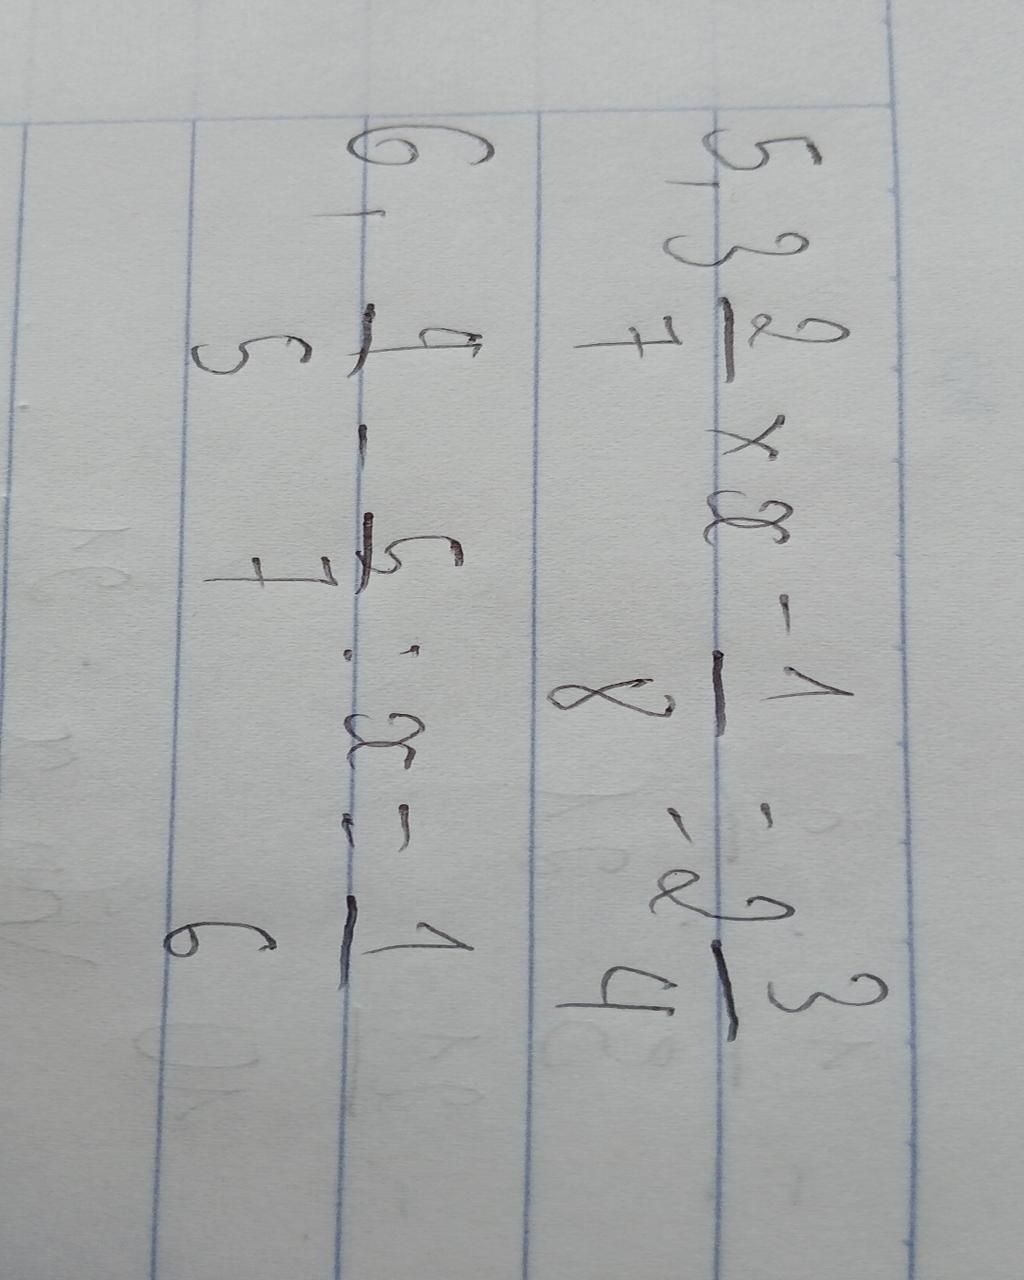 5, 3 2/7 × x - 1/8 = 2 3/4
6, 9/5 - 5/7 : x = 1/6